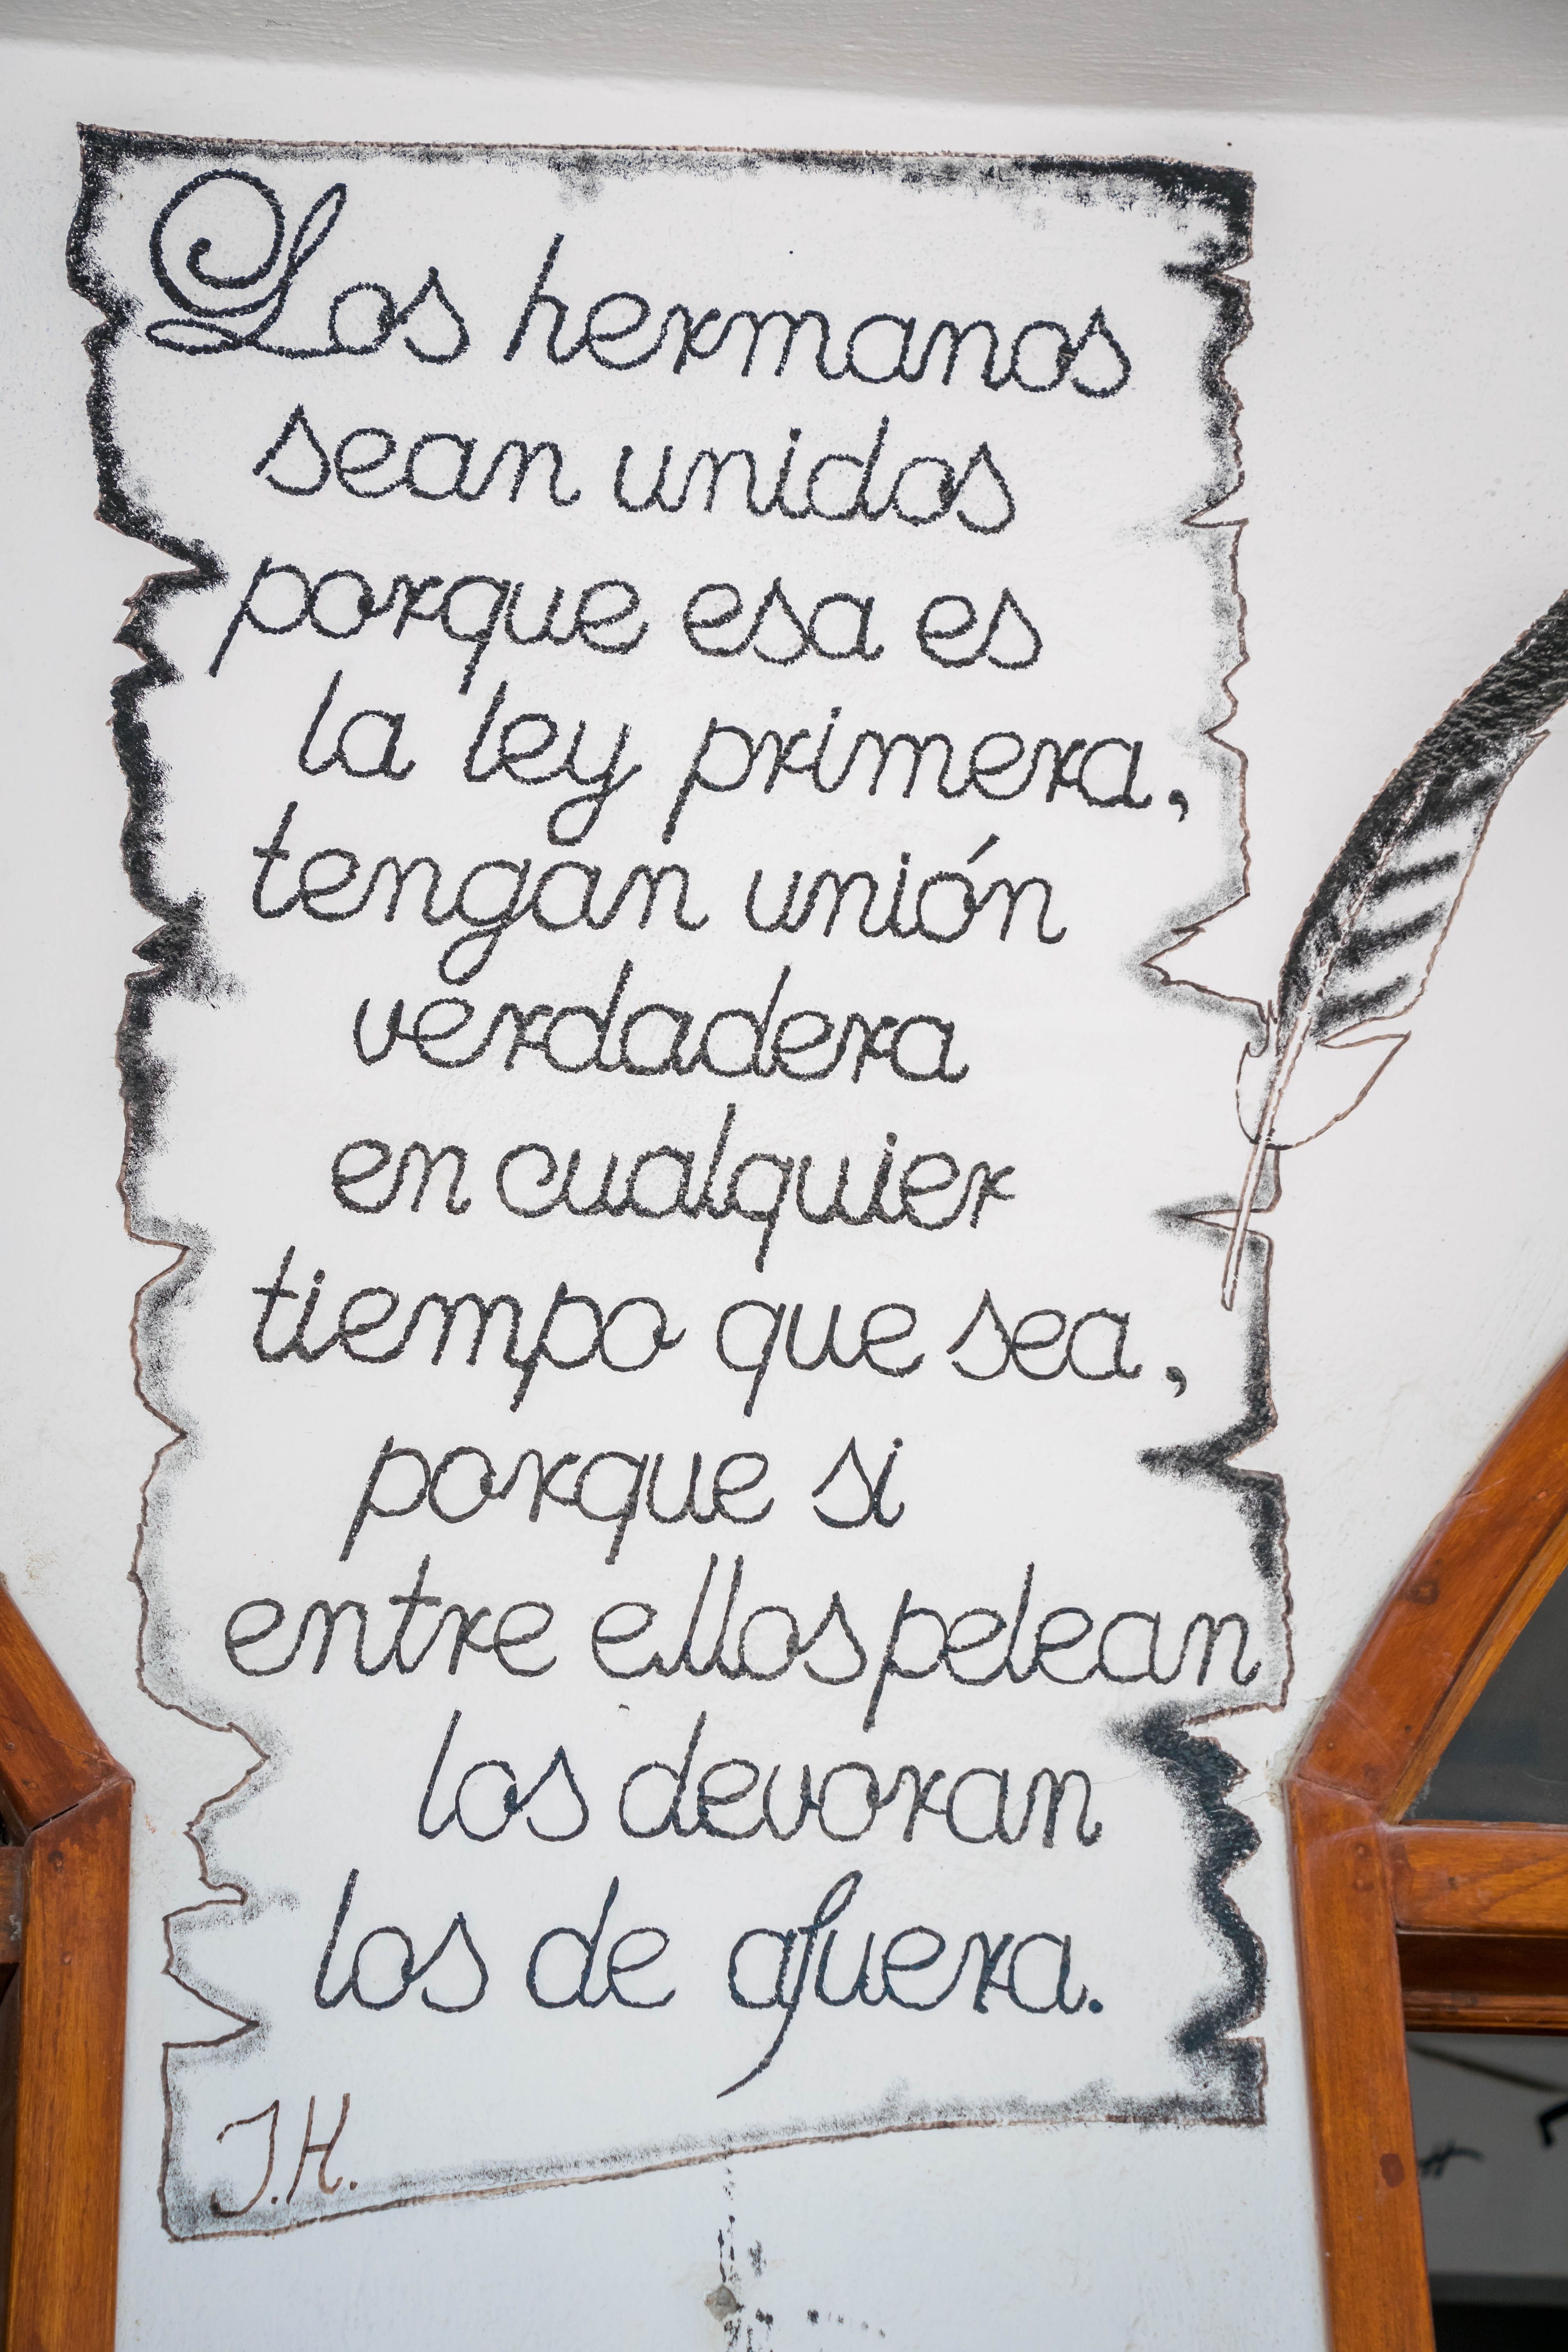 Los hermanos
sean unidos
porque esa es
la ley primera,
tengan unión
verdadera
en cualquier
tiempo que sea,
porque si
entre ellos pelean
los devoran
los de afuera.
J.H.